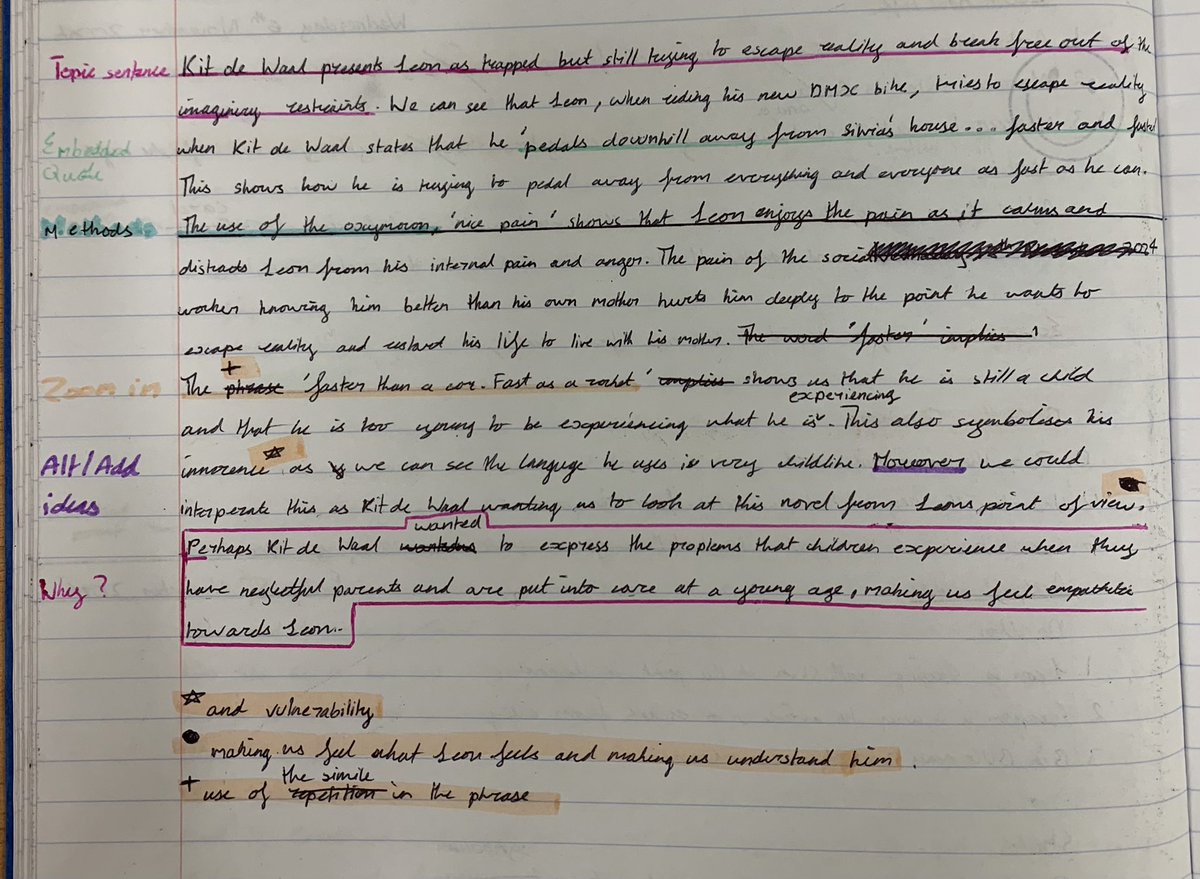 Topic sentence Kit de Waal presents Leon as trapped but still trying to escape reality and break free out of the
imaginary restraints. We can see that Leon, when riding his new BMX bike, tries to escape reality
Embedded Quote when Kit de Waal states that he 'pedals downhill away from Silvia's house... faster and faster
This shows how he is trying to pedal away from everything and everyone as fast as he can.
Methods The use of the oxymoron, 'nice pain' shows that Leon enjoys the pain as it calms and
distracts Leon from his internal pain and anger. The pain of the social
worker knowing him better than his own mother hurts him deeply to the point he wants to
escape reality and restard his life to live with his mother. The word 'faster' implies
+
Zoom in The phrase 'faster than a car. Fast as a rocket,' implies shows us that he is still a child
experiencing
and that he is too young to be experiencing what he is. This also symbolises his
☆
Alt/Add ideas innocence as we can see the languge he uses is very childlike. Moreover we could
interperate this as Kit de Waal wanting us to look at this novel from Leons point of view. ●
wanted
Perhaps Kit de Waal to express the problems that children experience when they
Why? have neglectful parents and are put into care at a young age, making us feel empathetic
towards Leon..
☆ and vulnerability
● making us feel what Leon feels and making us understand him.
the simile
+ use of repetition in the phrase